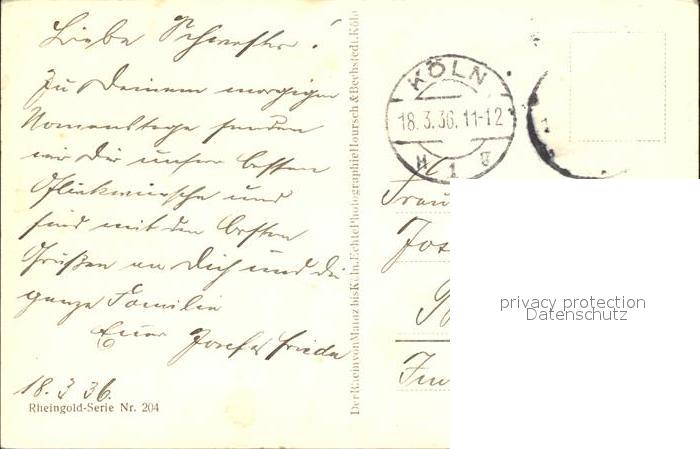 Liebe Schwester!
Zu Deinem morgigen
Namenstage senden
wir Dir unsere besten
Glückwünsche und
sind mit den besten
Grüßen an Dich und die
ganze Familie
Euer Josef u. Frieda
18. 3. 36.
Rheingold-Serie Nr. 204
Der Rhein von Mainz bis Köln. Echte Photographie Hoursch & Bechstedt, Köln
KÖLN
18.3.36.11-12
1
Frau
Jos
privacy protection
Datenschutz